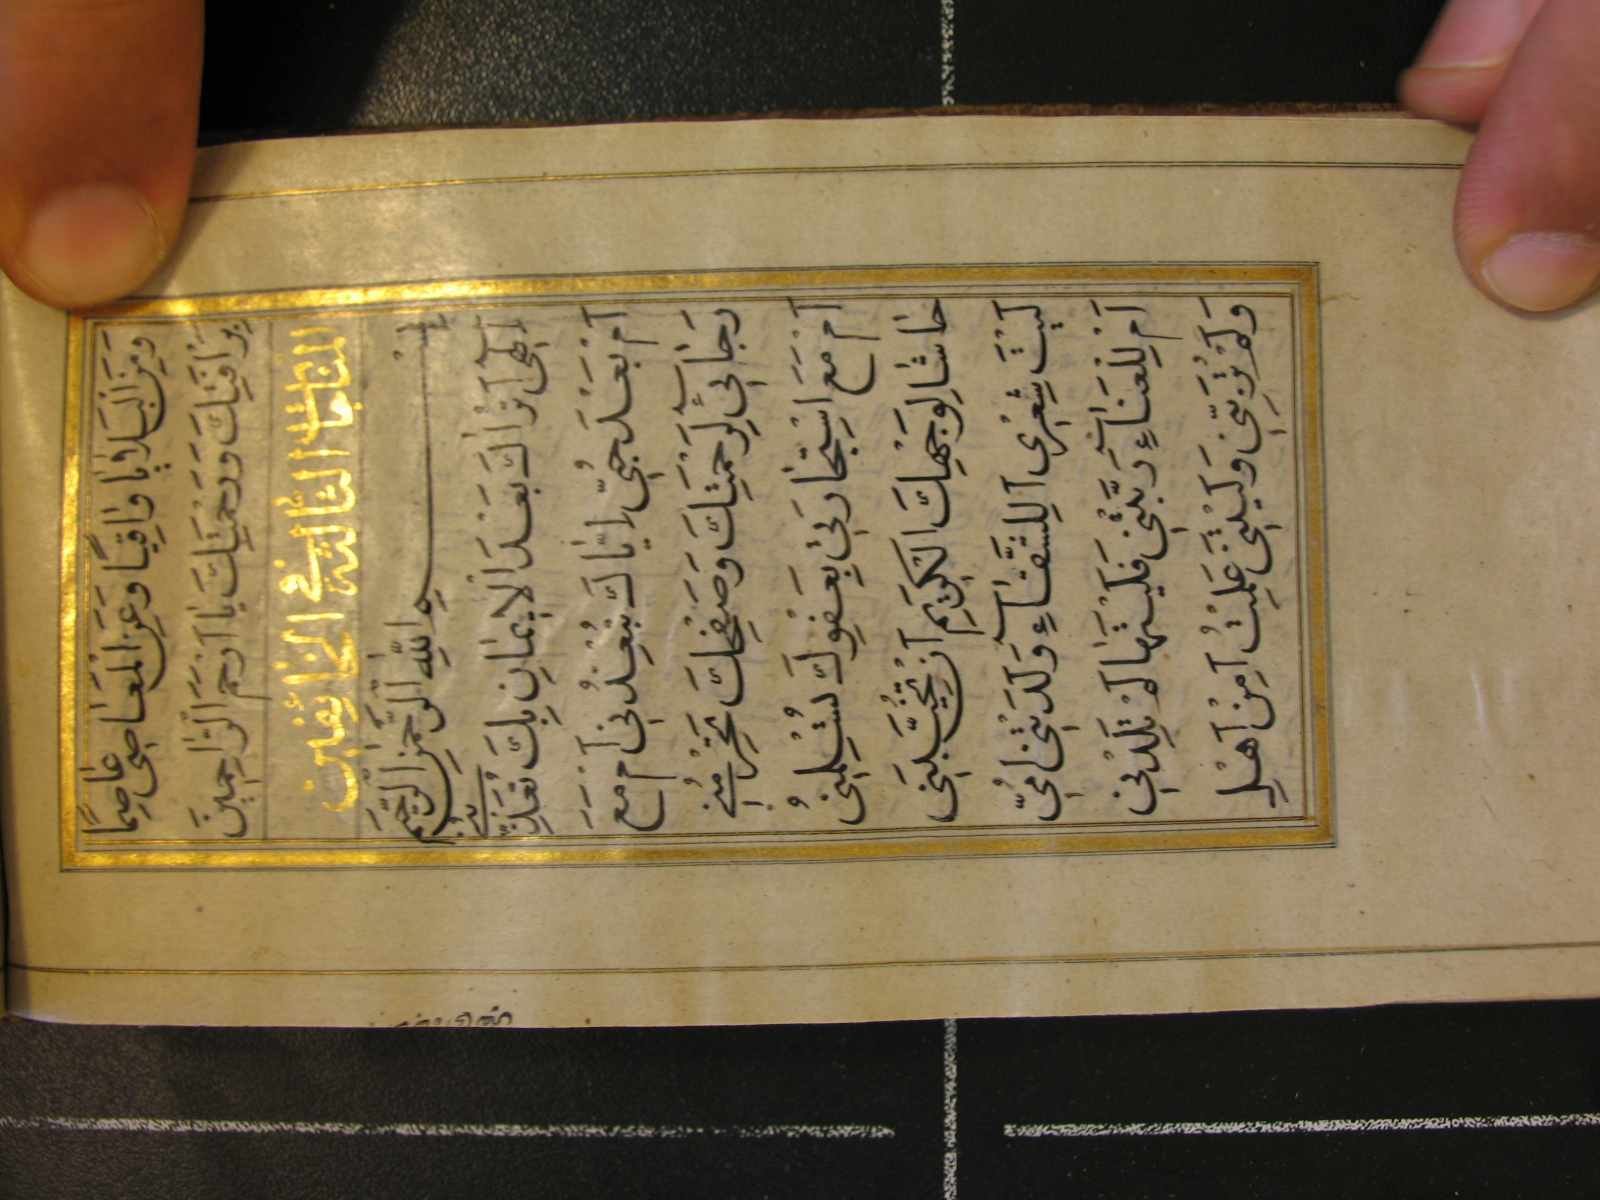 وَمِنَ الْبَلَايَا وَاقِيًا وَعَنِ الْمَعَاصِي عَاصِمًا
بِرَأْفَتِكَ وَرَحْمَتِكَ يَا أَرْحَمَ الرَّاحِمِينَ
المناجات الثالثة في الخائفين
بِسْمِ اللهِ الرَّحْمٰنِ الرَّحِيمِ
اِلٰهِي اَتَرَاكَ بَعْدَ الْاِيمَانِ بِكَ تُعَذِّبُنِي
اَمْ بَعْدَ حُبِّي اِيَّاكَ تُبَعِّدُنِي اَمْ مَعَ
رَجَائِي لِرَحْمَتِكَ وَصَفْحِكَ تَحْرِمُنِي
اَمْ مَعَ اسْتِجَارَتِي بِعَفْوِكَ تُسْلِمُنِي
حَاشَا لِوَجْهِكَ الْكَرِيمِ اَنْ تُخَيِّبَنِي
لَيْتَ شِعْرِي اَلِلشَّقَاءِ وَلَدَتْنِي اُمِّي
اَمْ لِلْعَنَاءِ رَبَّتْنِي فَلَيْتَهَا لَمْ تَلِدْنِي
وَلَمْ تُرَبِّنِي وَلَيْتَنِي عَلِمْتُ اَمِنْ اَهْلِ